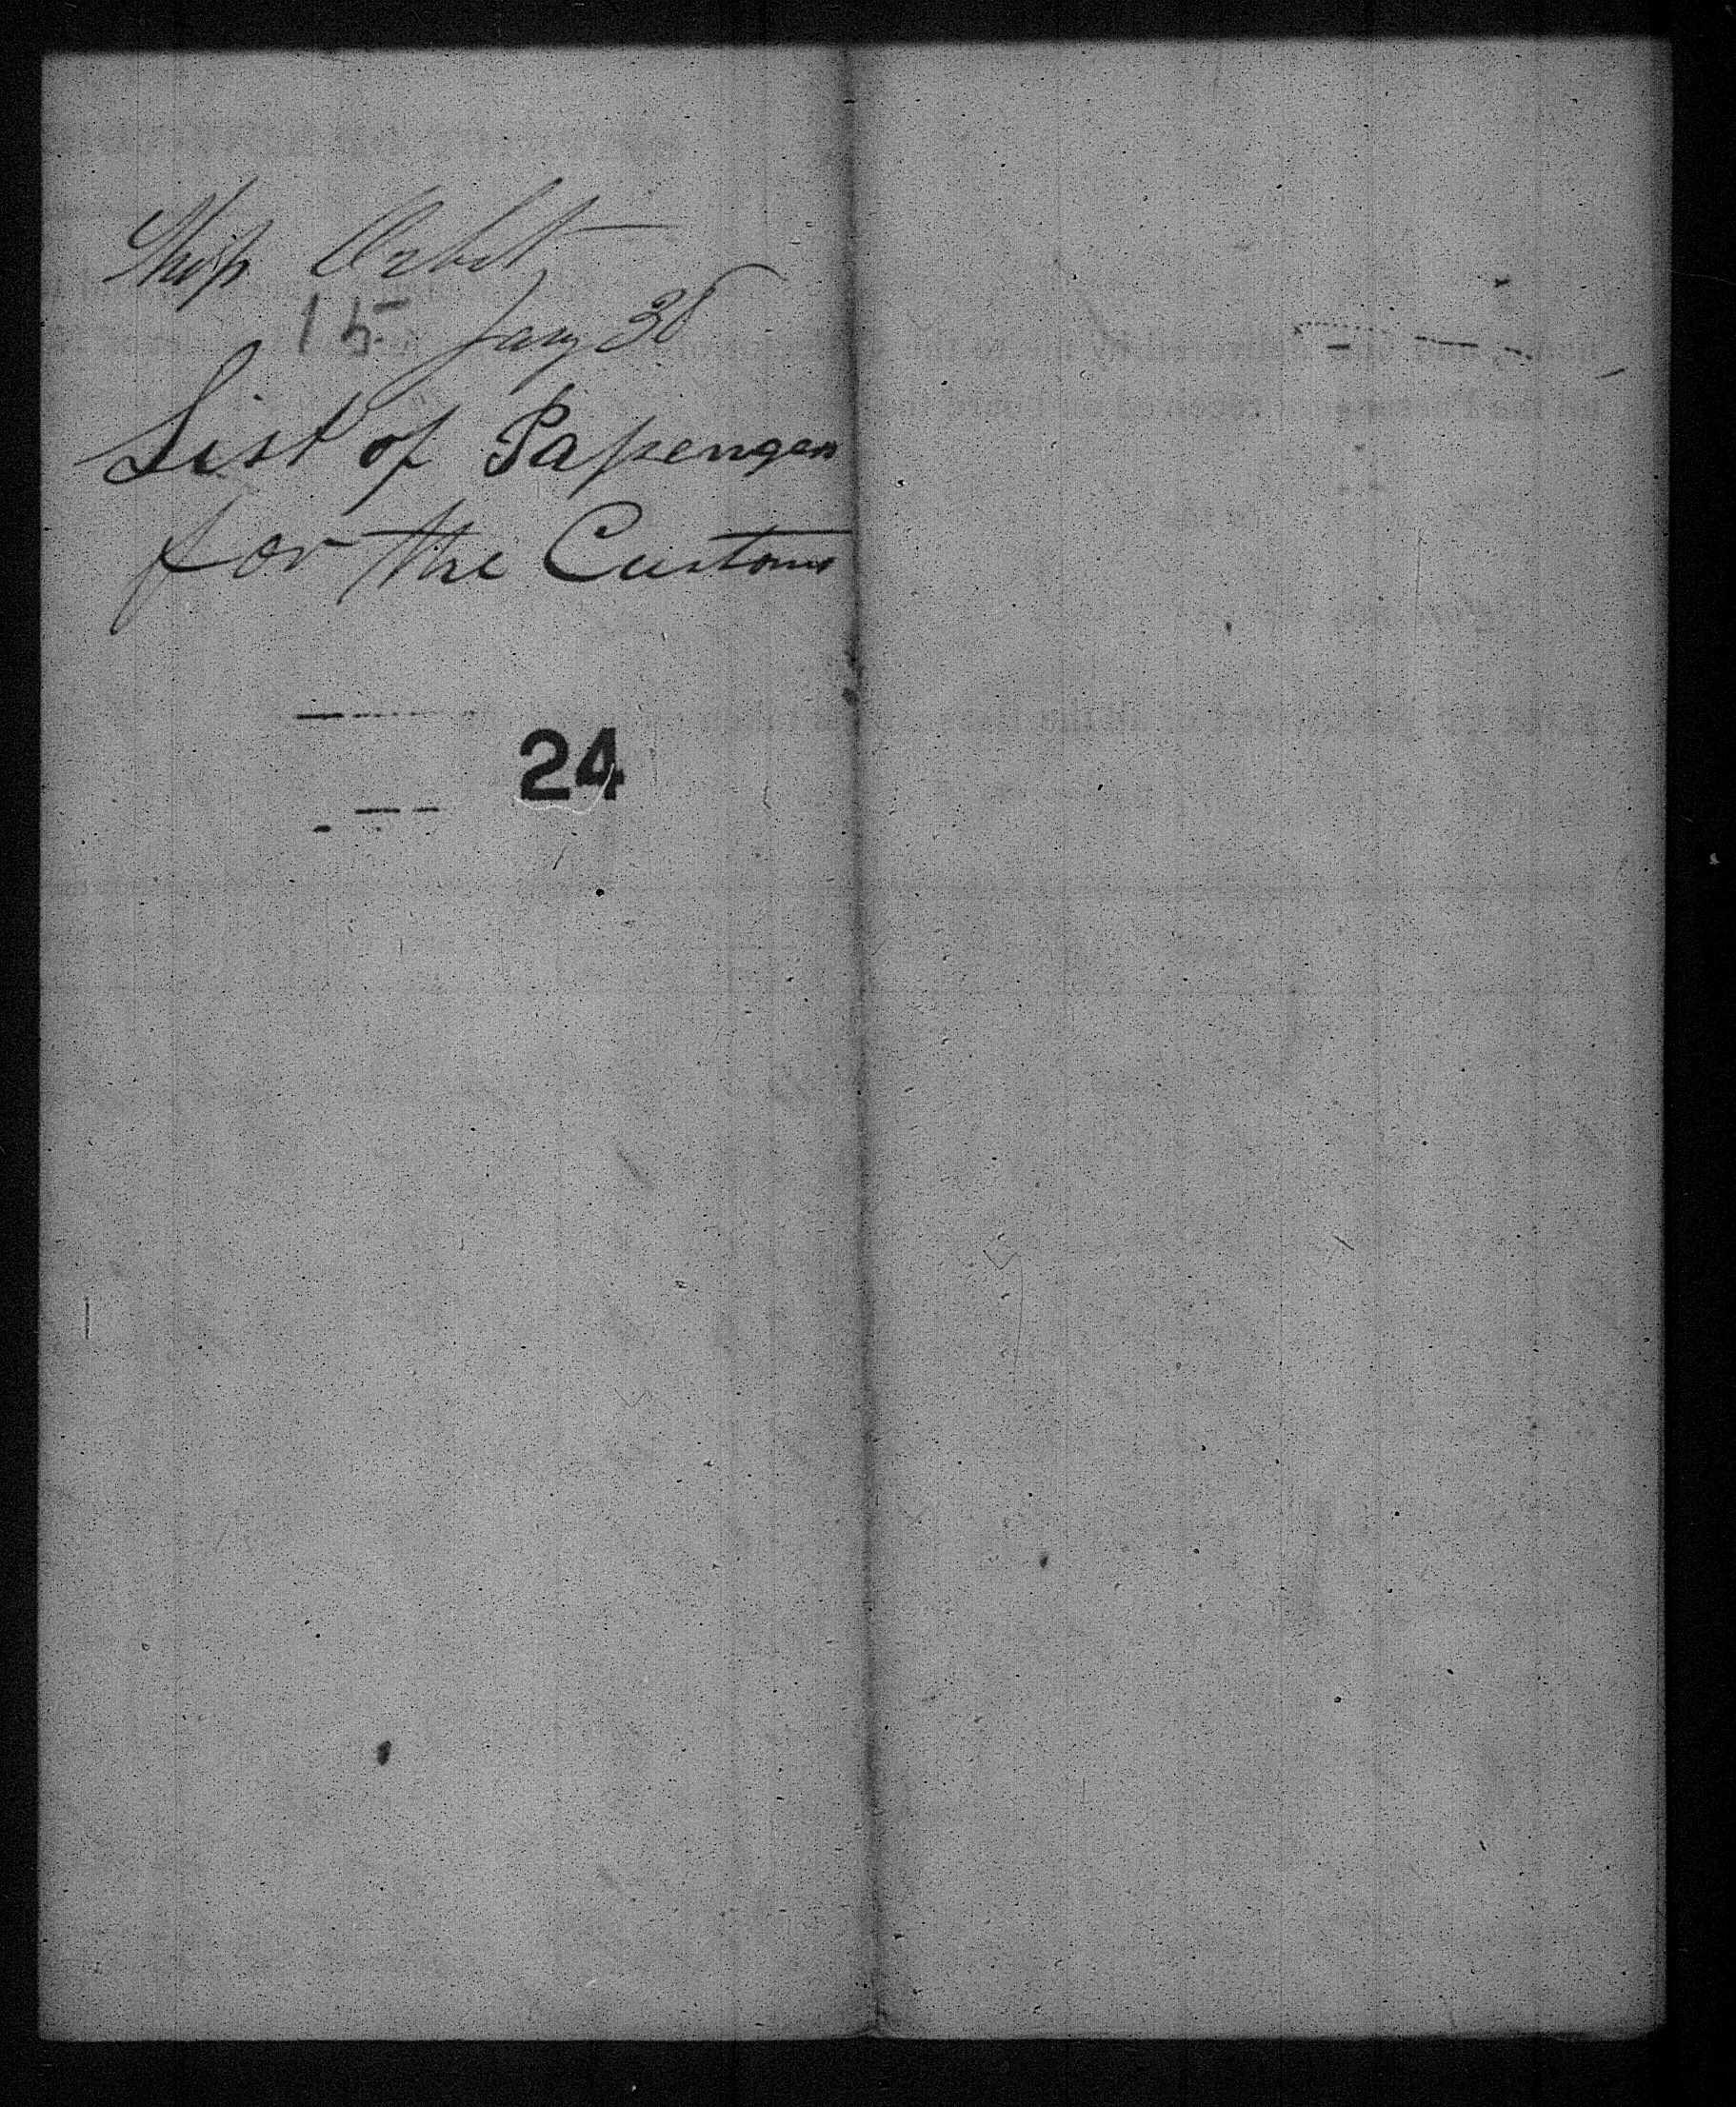 Ship Orbit
15 Jany 30
List of Passengers
for the Customs
24